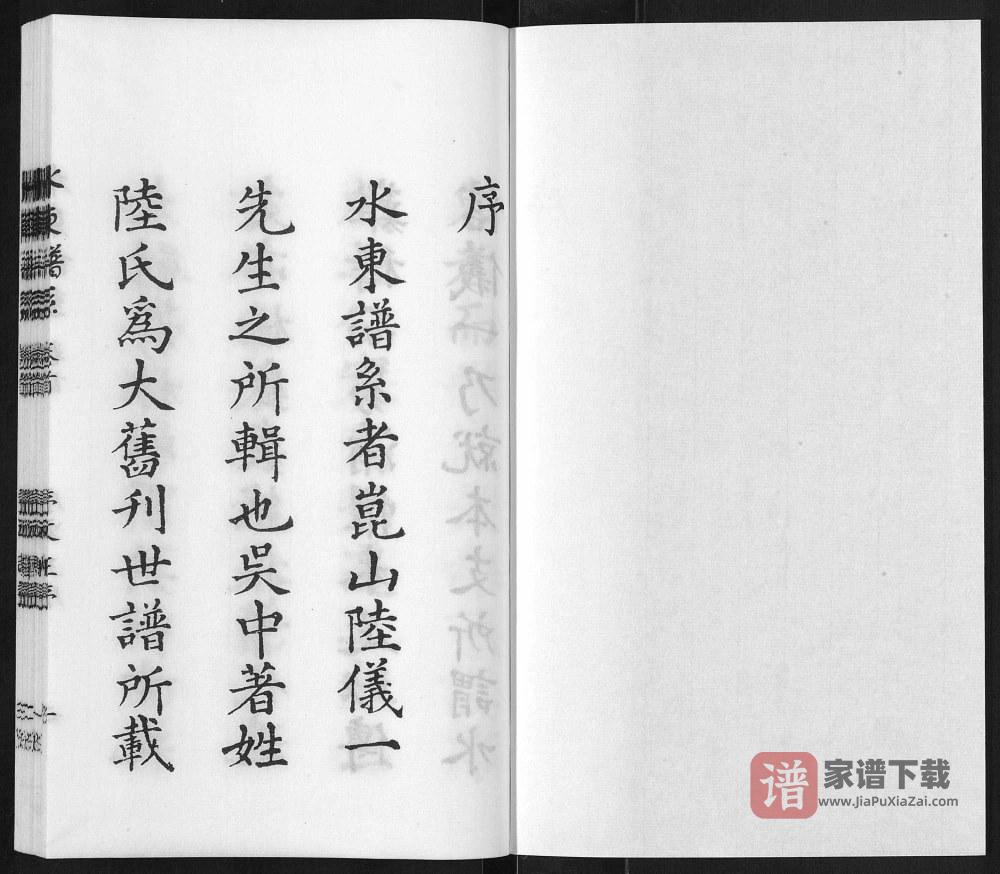 序
水東譜系者崑山陸儀一
先生之所輯也吳中著姓
陸氏爲大舊刊世譜所載
水東譜系
谱
家谱下载
www.JiaPuXiaZai.com